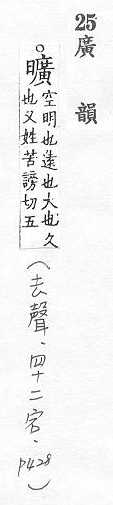 25廣韻
。曠空明也遠也大也久
也又姓苦謗切五
(去聲.四十二宕.P428)